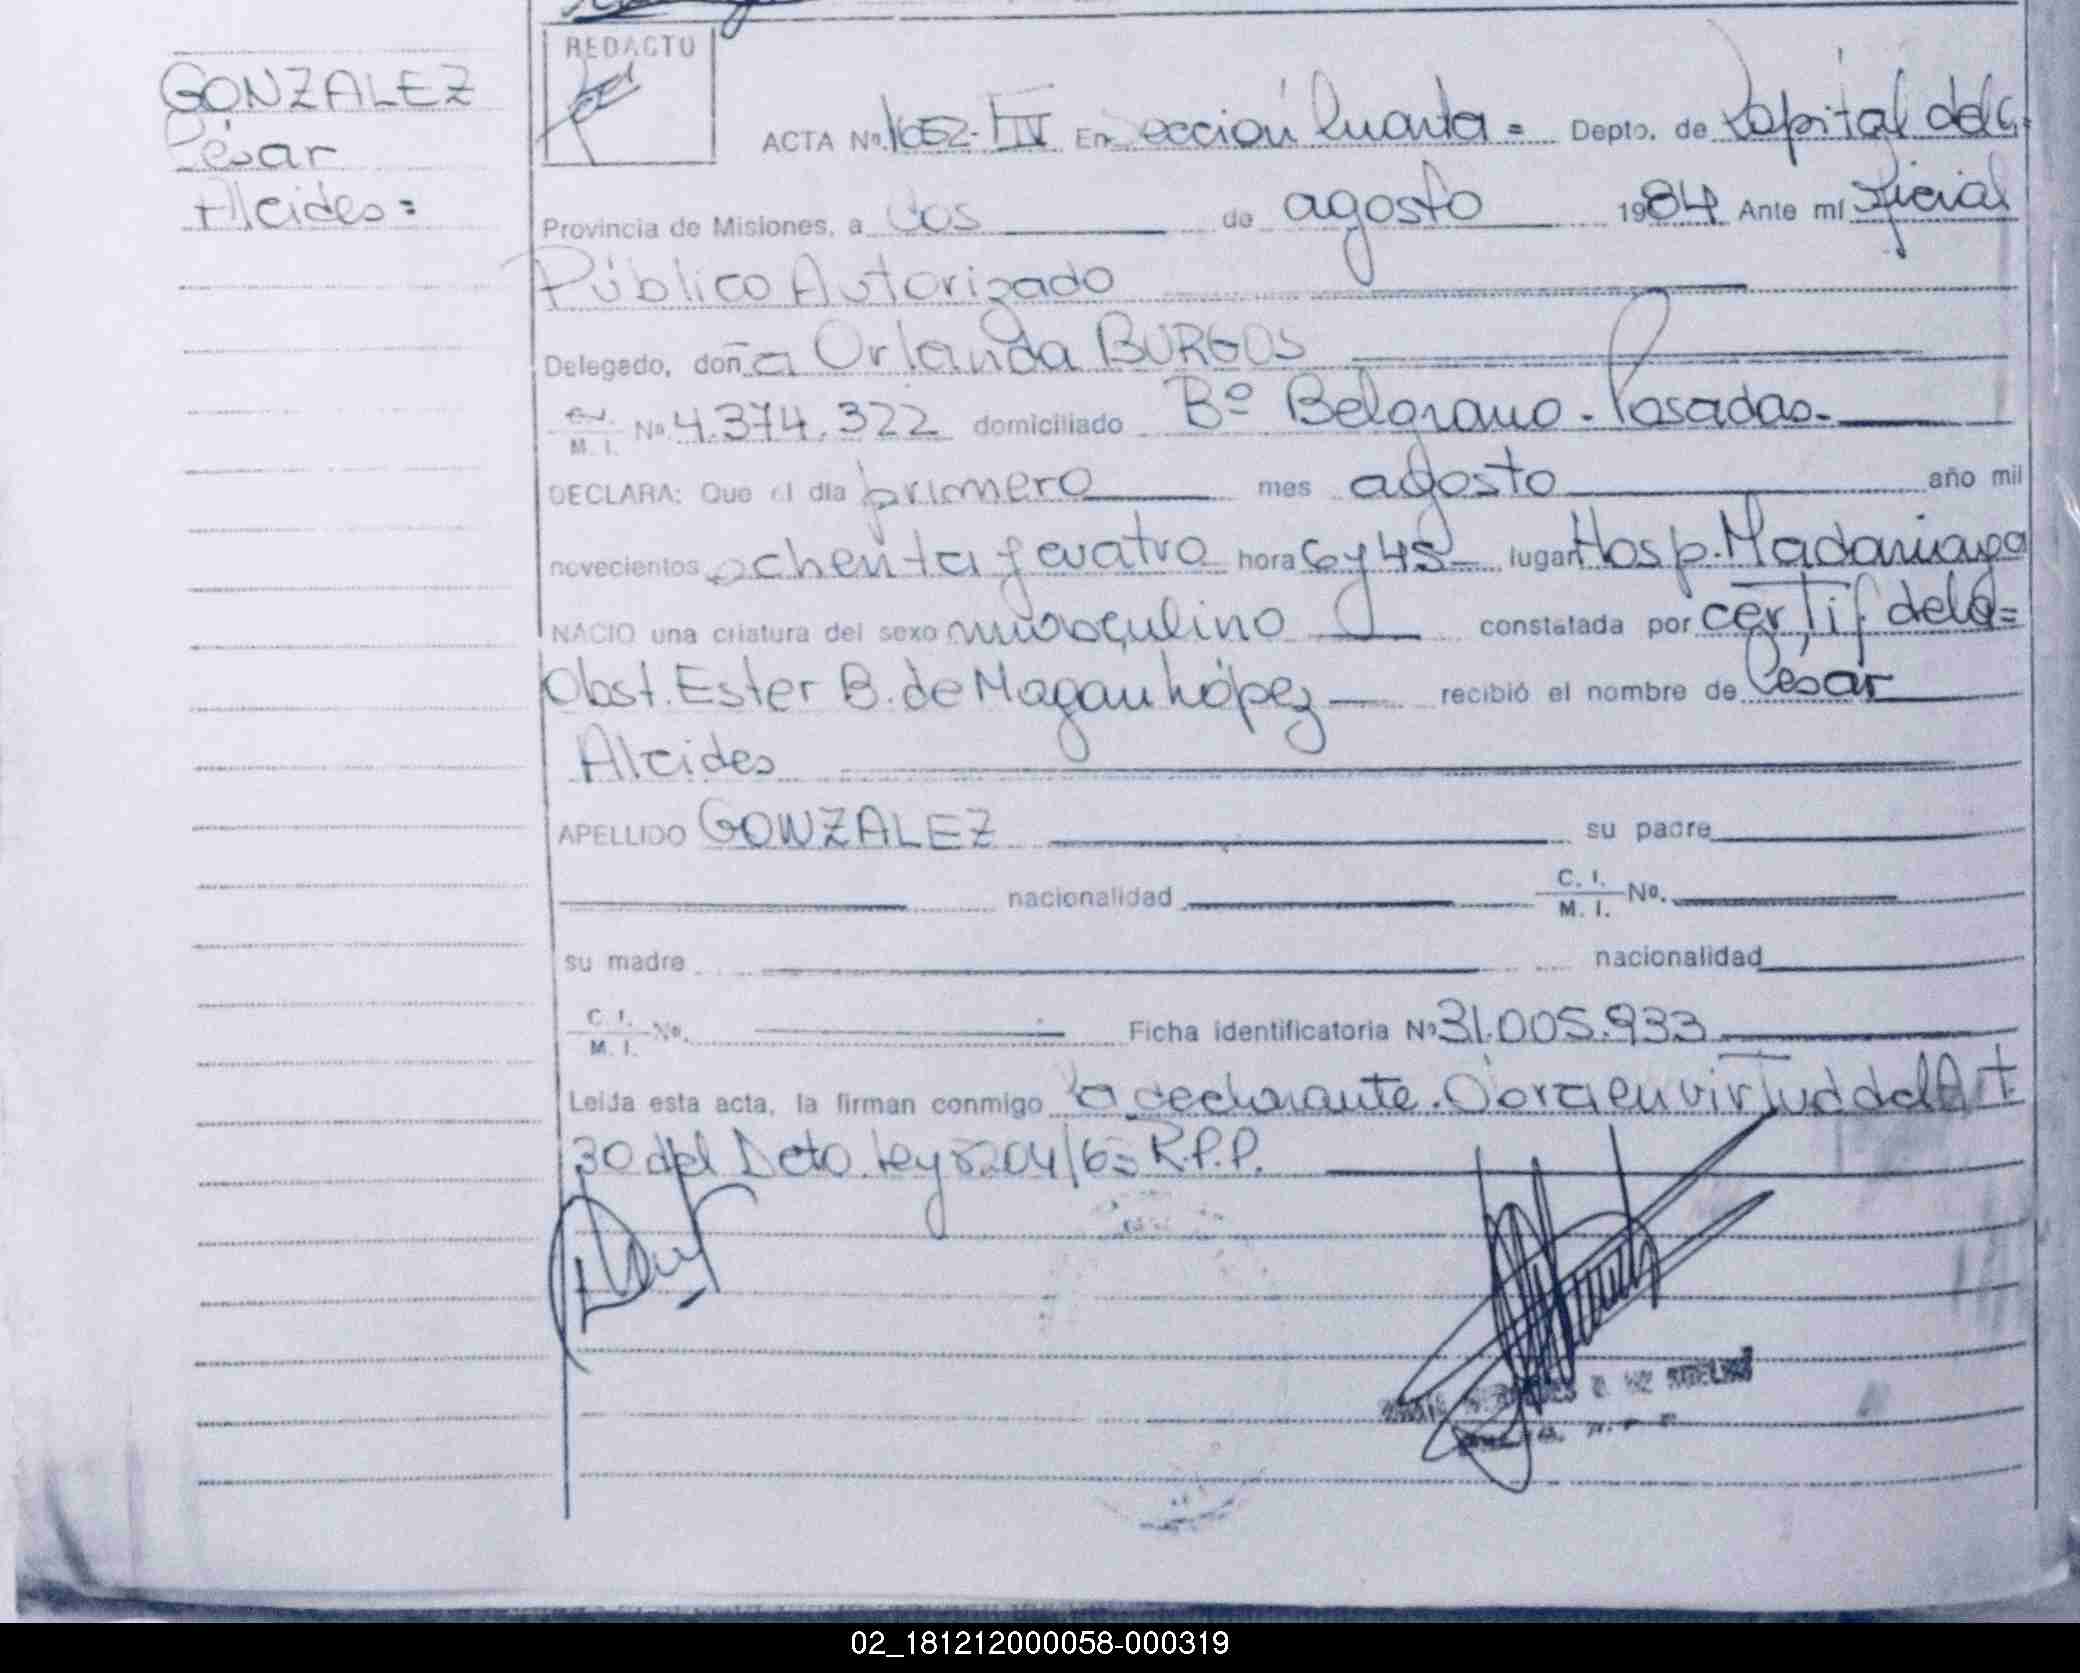 GONZALEZ
César
Alcides =
REDACTO
ACTA Nº 1652-T IV En Sección Cuarta = Depto. de Capital del C.
Provincia de Misiones, a dos de agosto 1984 Ante mí Oficial
Público Autorizado
Delegado, doña Orlanda BURGOS
M. I. Nº 4.374.322 domiciliado Bº Belgrano - Posadas.
DECLARA: Que el día primero mes agosto año mil
novecientos ochenta y cuatro hora 6 y 45 lugar Hosp. Madariaga
NACIO una criatura del sexo masculino constatada por certif de la =
Obst. Ester B. de Magan López recibió el nombre de César
Alcides
APELLIDO GONZALEZ su padre
nacionalidad C. I. M. I. Nº.
su madre nacionalidad
C. I. M. I. Nº. Ficha identificatoria Nº 31.005.933
Leída esta acta, la firman conmigo la declarante. Obra en virtud del Art
30 del Dcto. Ley 8204/63 R.P.P.
02_181212000058-000319